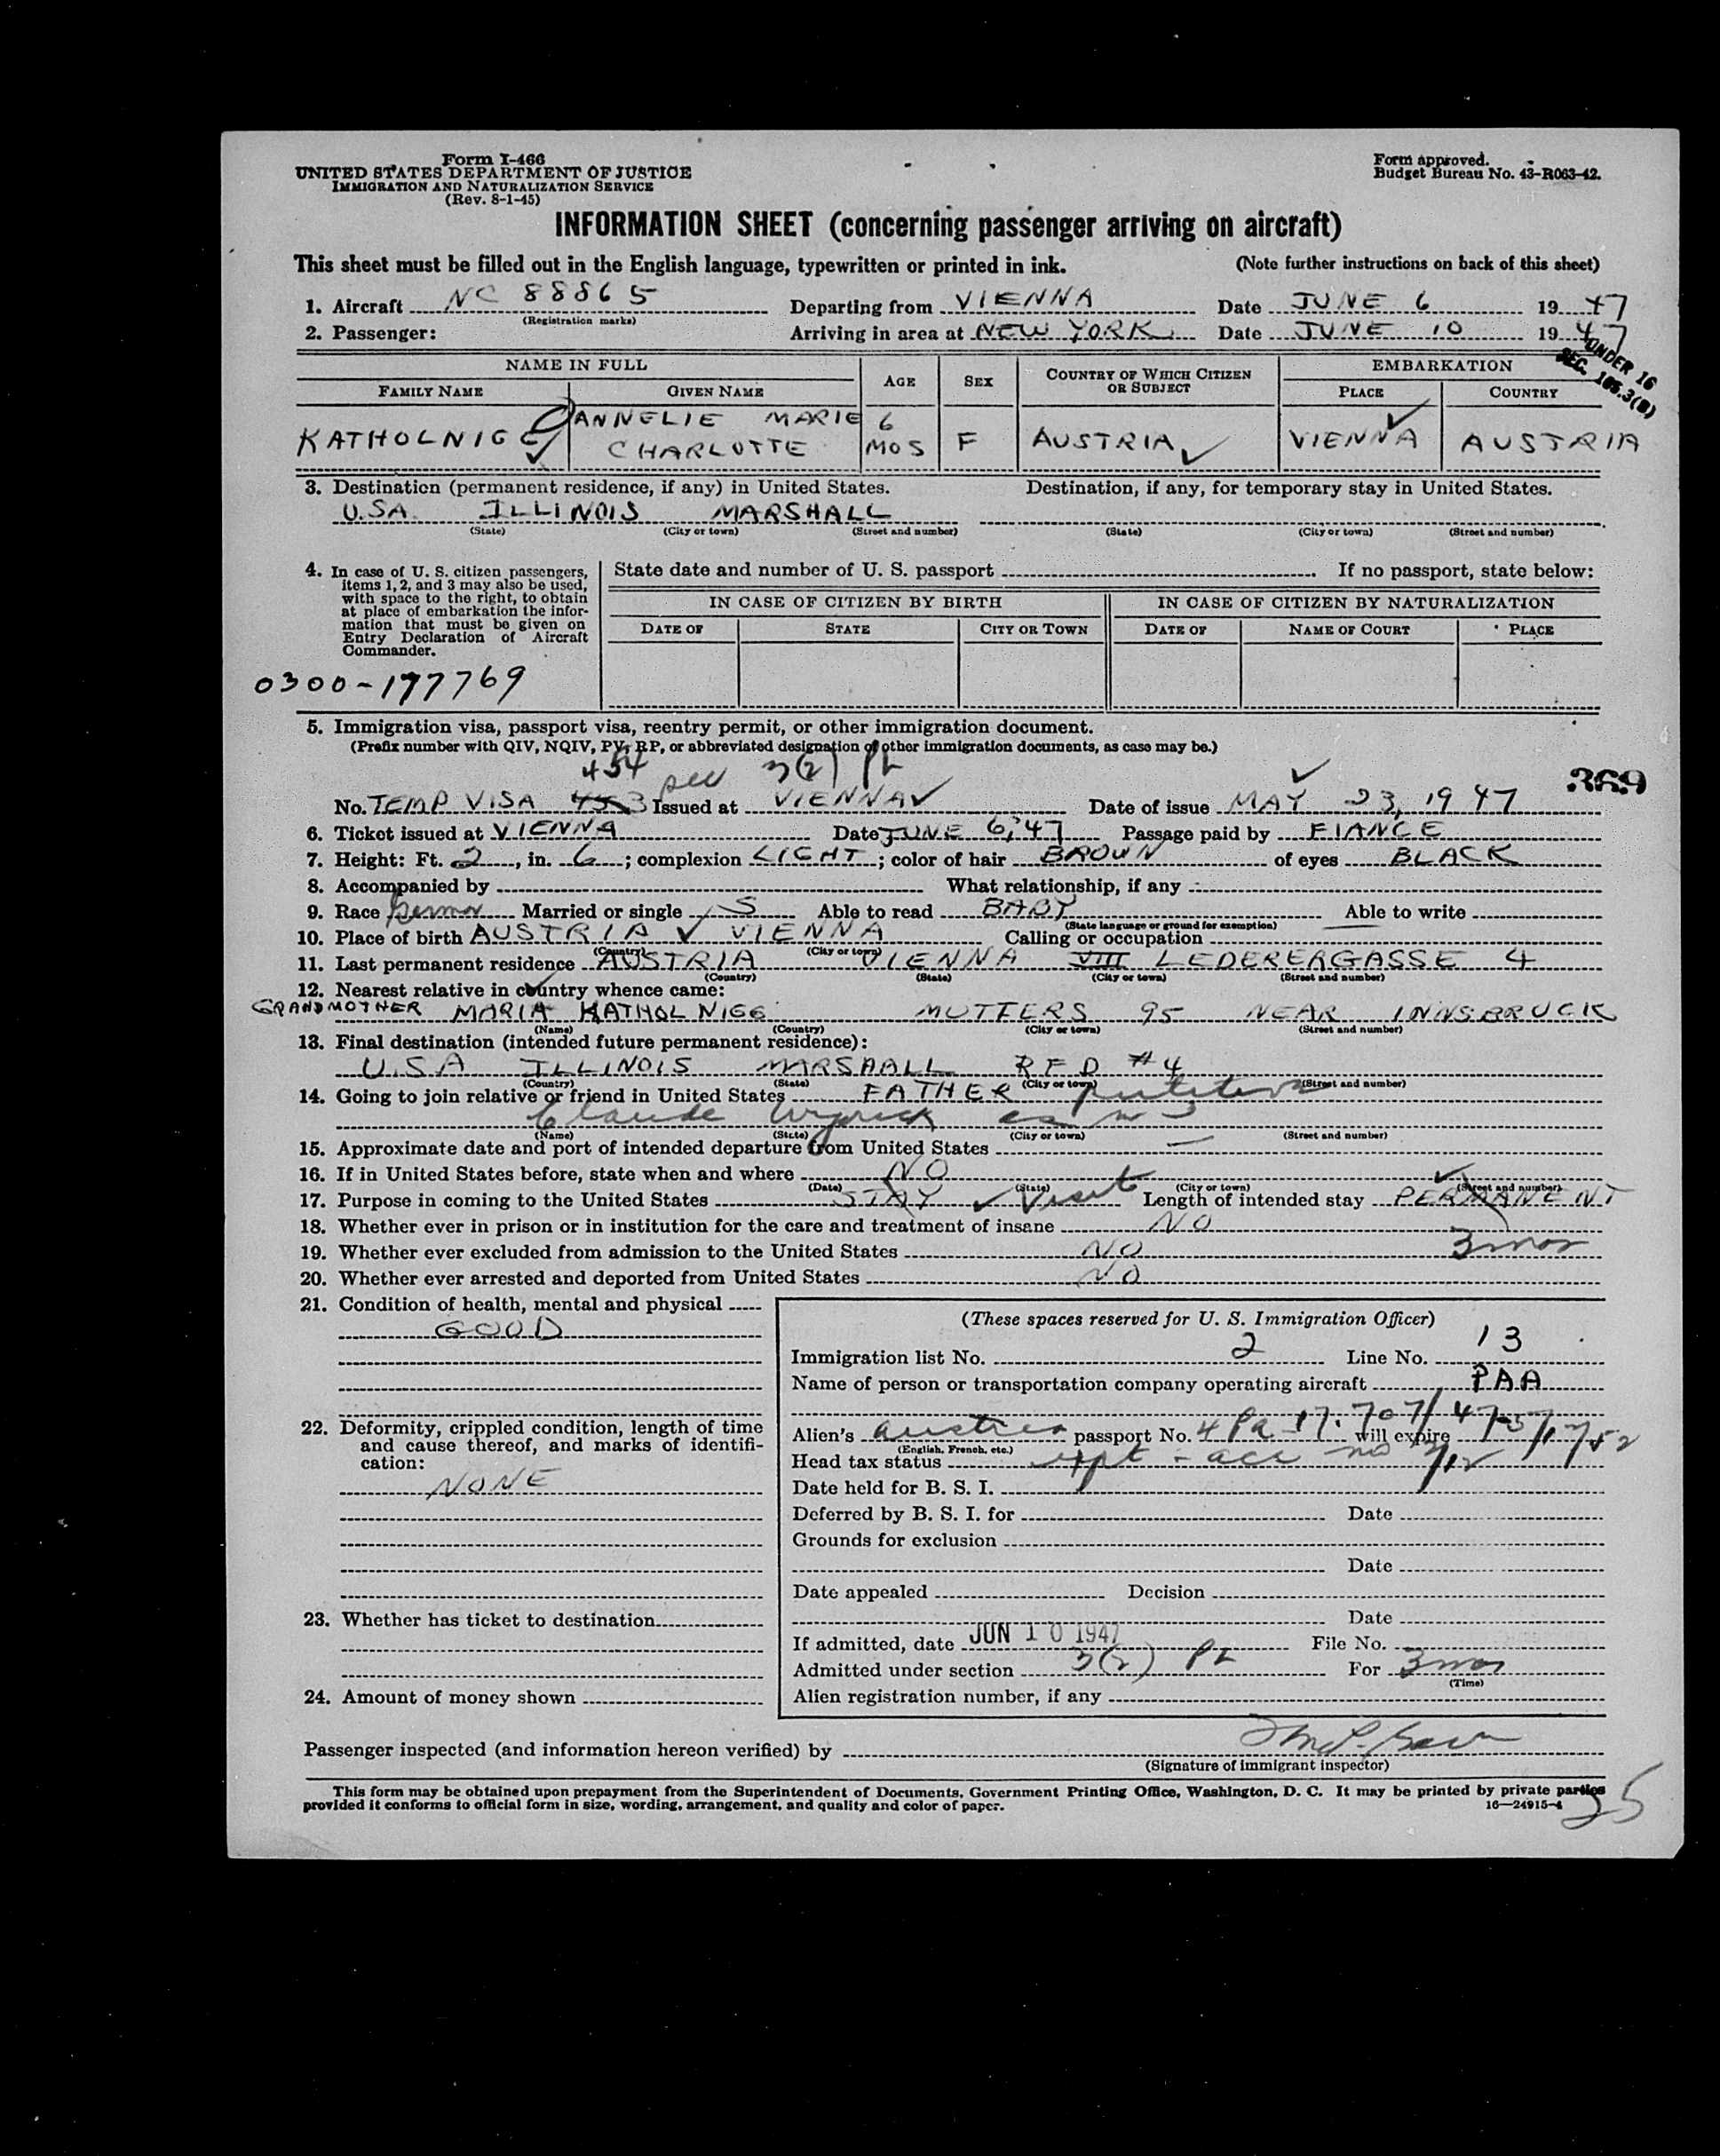 Form I-466
UNITED STATES DEPARTMENT OF JUSTICE
IMMIGRATION AND NATURALIZATION SERVICE
(Rev. 8-1-45)
Form approved.
Budget Bureau No. 43-R063-42.
INFORMATION SHEET (concerning passenger arriving on aircraft)
This sheet must be filled out in the English language, typewritten or printed in ink. (Note further instructions on back of this sheet)
1. Aircraft NC 88865 Departing from VIENNA Date JUNE 6 1947
(Registration marks)
2. Passenger: Arriving in area at NEW YORK Date JUNE 10 1947
UNDER 16
SEC. 105.3(B)
NAME IN FULL AGE SEX COUNTRY OF WHICH CITIZEN OR SUBJECT EMBARKATION
FAMILY NAME GIVEN NAME PLACE COUNTRY
KATHOLNIGG ANNELIE MARIE CHARLOTTE 6 MOS F AUSTRIA VIENNA AUSTRIA
3. Destination (permanent residence, if any) in United States. Destination, if any, for temporary stay in United States.
U.S.A. ILLINOIS MARSHALL
(State) (City or town) (Street and number) (State) (City or town) (Street and number)
4. In case of U. S. citizen passengers,
items 1, 2, and 3 may also be used,
with space to the right, to obtain
at place of embarkation the infor-
mation that must be given on
Entry Declaration of Aircraft
Commander.
0300-177769
State date and number of U. S. passport If no passport, state below:
IN CASE OF CITIZEN BY BIRTH IN CASE OF CITIZEN BY NATURALIZATION
DATE OF STATE CITY OR TOWN DATE OF NAME OF COURT PLACE
5. Immigration visa, passport visa, reentry permit, or other immigration document.
(Prefix number with QIV, NQIV, PV, RP, or abbreviated designation of other immigration documents, as case may be.)
454 3(2) PL
369
No. TEMP VISA 453 Issued at VIENNA Date of issue MAY 23, 1947
6. Ticket issued at VIENNA Date JUNE 6, 47 Passage paid by FIANCE
7. Height: Ft. 2, in. 6; complexion LIGHT; color of hair BROWN of eyes BLACK
8. Accompanied by What relationship, if any
9. Race German Married or single S Able to read BABY Able to write
(State language or ground for exemption)
10. Place of birth AUSTRIA VIENNA Calling or occupation
(Country) (City or town)
11. Last permanent residence AUSTRIA VIENNA VIII LEDERERGASSE 4
(Country) (State) (City or town) (Street and number)
12. Nearest relative in country whence came:
GRANDMOTHER MARIA KATHOLNIGG MUTTERS 95 NEAR INNSBRUCK
(Name) (Country) (City or town) (Street and number)
13. Final destination (intended future permanent residence):
U.S.A ILLINOIS MARSHALL R F D #4
(Country) (State) (City or town) (Street and number)
14. Going to join relative or friend in United States FATHER putative
Claude
(Name) (State) (City or town) (Street and number)
15. Approximate date and port of intended departure from United States —
16. If in United States before, state when and where NO
(Date) (State) (City or town) (Street and number)
17. Purpose in coming to the United States STAY Visit Length of intended stay PERMANENT
18. Whether ever in prison or in institution for the care and treatment of insane NO
3 mos
19. Whether ever excluded from admission to the United States NO
20. Whether ever arrested and deported from United States NO
21. Condition of health, mental and physical
GOOD
22. Deformity, crippled condition, length of time
and cause thereof, and marks of identifi-
cation:
NONE
23. Whether has ticket to destination
24. Amount of money shown
(These spaces reserved for U. S. Immigration Officer)
Immigration list No. 2 Line No. 13
Name of person or transportation company operating aircraft PAA
Alien's Austria passport No. will expire
(English, French, etc.)
Head tax status
Date held for B. S. I.
Deferred by B. S. I. for Date
Grounds for exclusion
Date
Date appealed Decision
Date
If admitted, date JUN 10 1947 File No.
Admitted under section 3(2) PL For 3 mos
(Time)
Alien registration number, if any
Passenger inspected (and information hereon verified) by
(Signature of immigrant inspector)
This form may be obtained upon prepayment from the Superintendent of Documents, Government Printing Office, Washington, D. C. It may be printed by private parties
provided it conforms to official form in size, wording, arrangement, and quality and color of paper. 16—24915-4
25